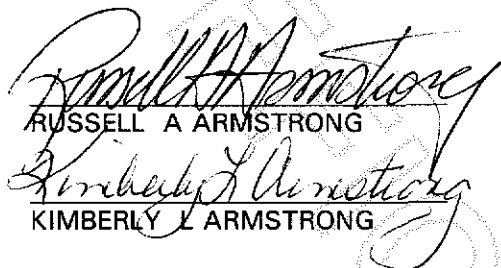 Russell A Armstrong
RUSSELL A ARMSTRONG
Kimberly L Armstrong
KIMBERLY L ARMSTRONG